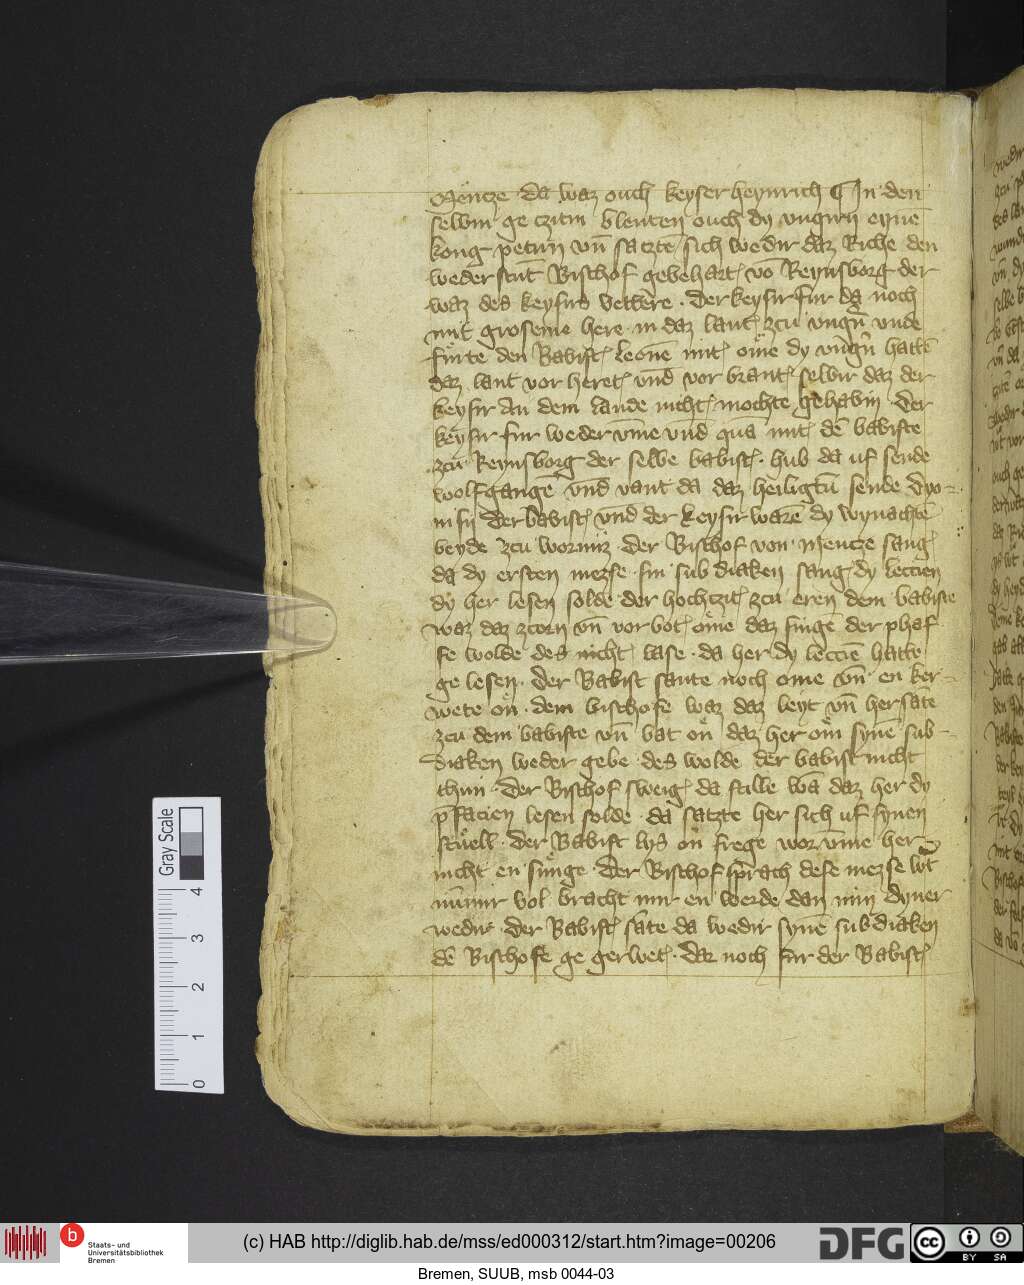 Mentze da waz ouch keyser heynrich ¶ In den
selbin ge cziten blenten ouch dy vngirn eynē
konig petirn vn̄ satzte sich wedir daz Riche den
weder stūt Bischof gebehart vō Reynsborg der
waz des keysirs vettere · Der keysir fur da noch
mit groseme here in daz lant zcu vngirn vnde
furte den Babist leonē mit ome dy vngirn hattē
daz lant vor heret vnd vor brant selbir daz der
keysir an dem lande nicht mochte gehabin · Der
keysir fur weder vmme vnd quā mit dē babiste
zcu Reynsborg der selbe babist · hub da uf sende
wolfgangē vnd vant da daz heiligtū sende dyo-
nisij der babist vnd der keysir warē dy wynachtē
beyde zcu wormiz · Der Bischof von Mentze sang
da dy ersten mezse · sin sub diaken sang dy leccien
dy her lesen solde der hochczit zcu eren dem babiste
waz daz zcorn vn̄ vor bot ome daz singē der phaf
fe wolde des nicht lase · da her dy lecciē hatte
ge lesen · Der Babist sante noch ome vn̄ en ker-
wete on · dem bischofe waz daz leyt vn̄ her sāte
zcu dem babiste vn̄ bat on daz her om synē sub-
diaken weder gebe · des wolde der babist nicht
thun · Der Bischof sweig da stille wā daz her dy
p̄facien lesen solde · da satzte her sich uf synen
stuell · der Babist lys on frege wor vmme her
nicht en sunge · Der Bischof sprach dese mezse wit
nūmir vol bracht mir en werde dan miin dyner
wedir · der Babist sāte da wedir synē sub diaken
dē Bischofe ge gerwet · dar noch fur der Babist
Gray Scale
4
3
2
1
0
b
Staats- und
Universitätsbibliothek
Bremen
(c) HAB http://diglib.hab.de/mss/ed000312/start.htm?image=00206
DFG
cc BY SA
Bremen, SUUB, msb 0044-03